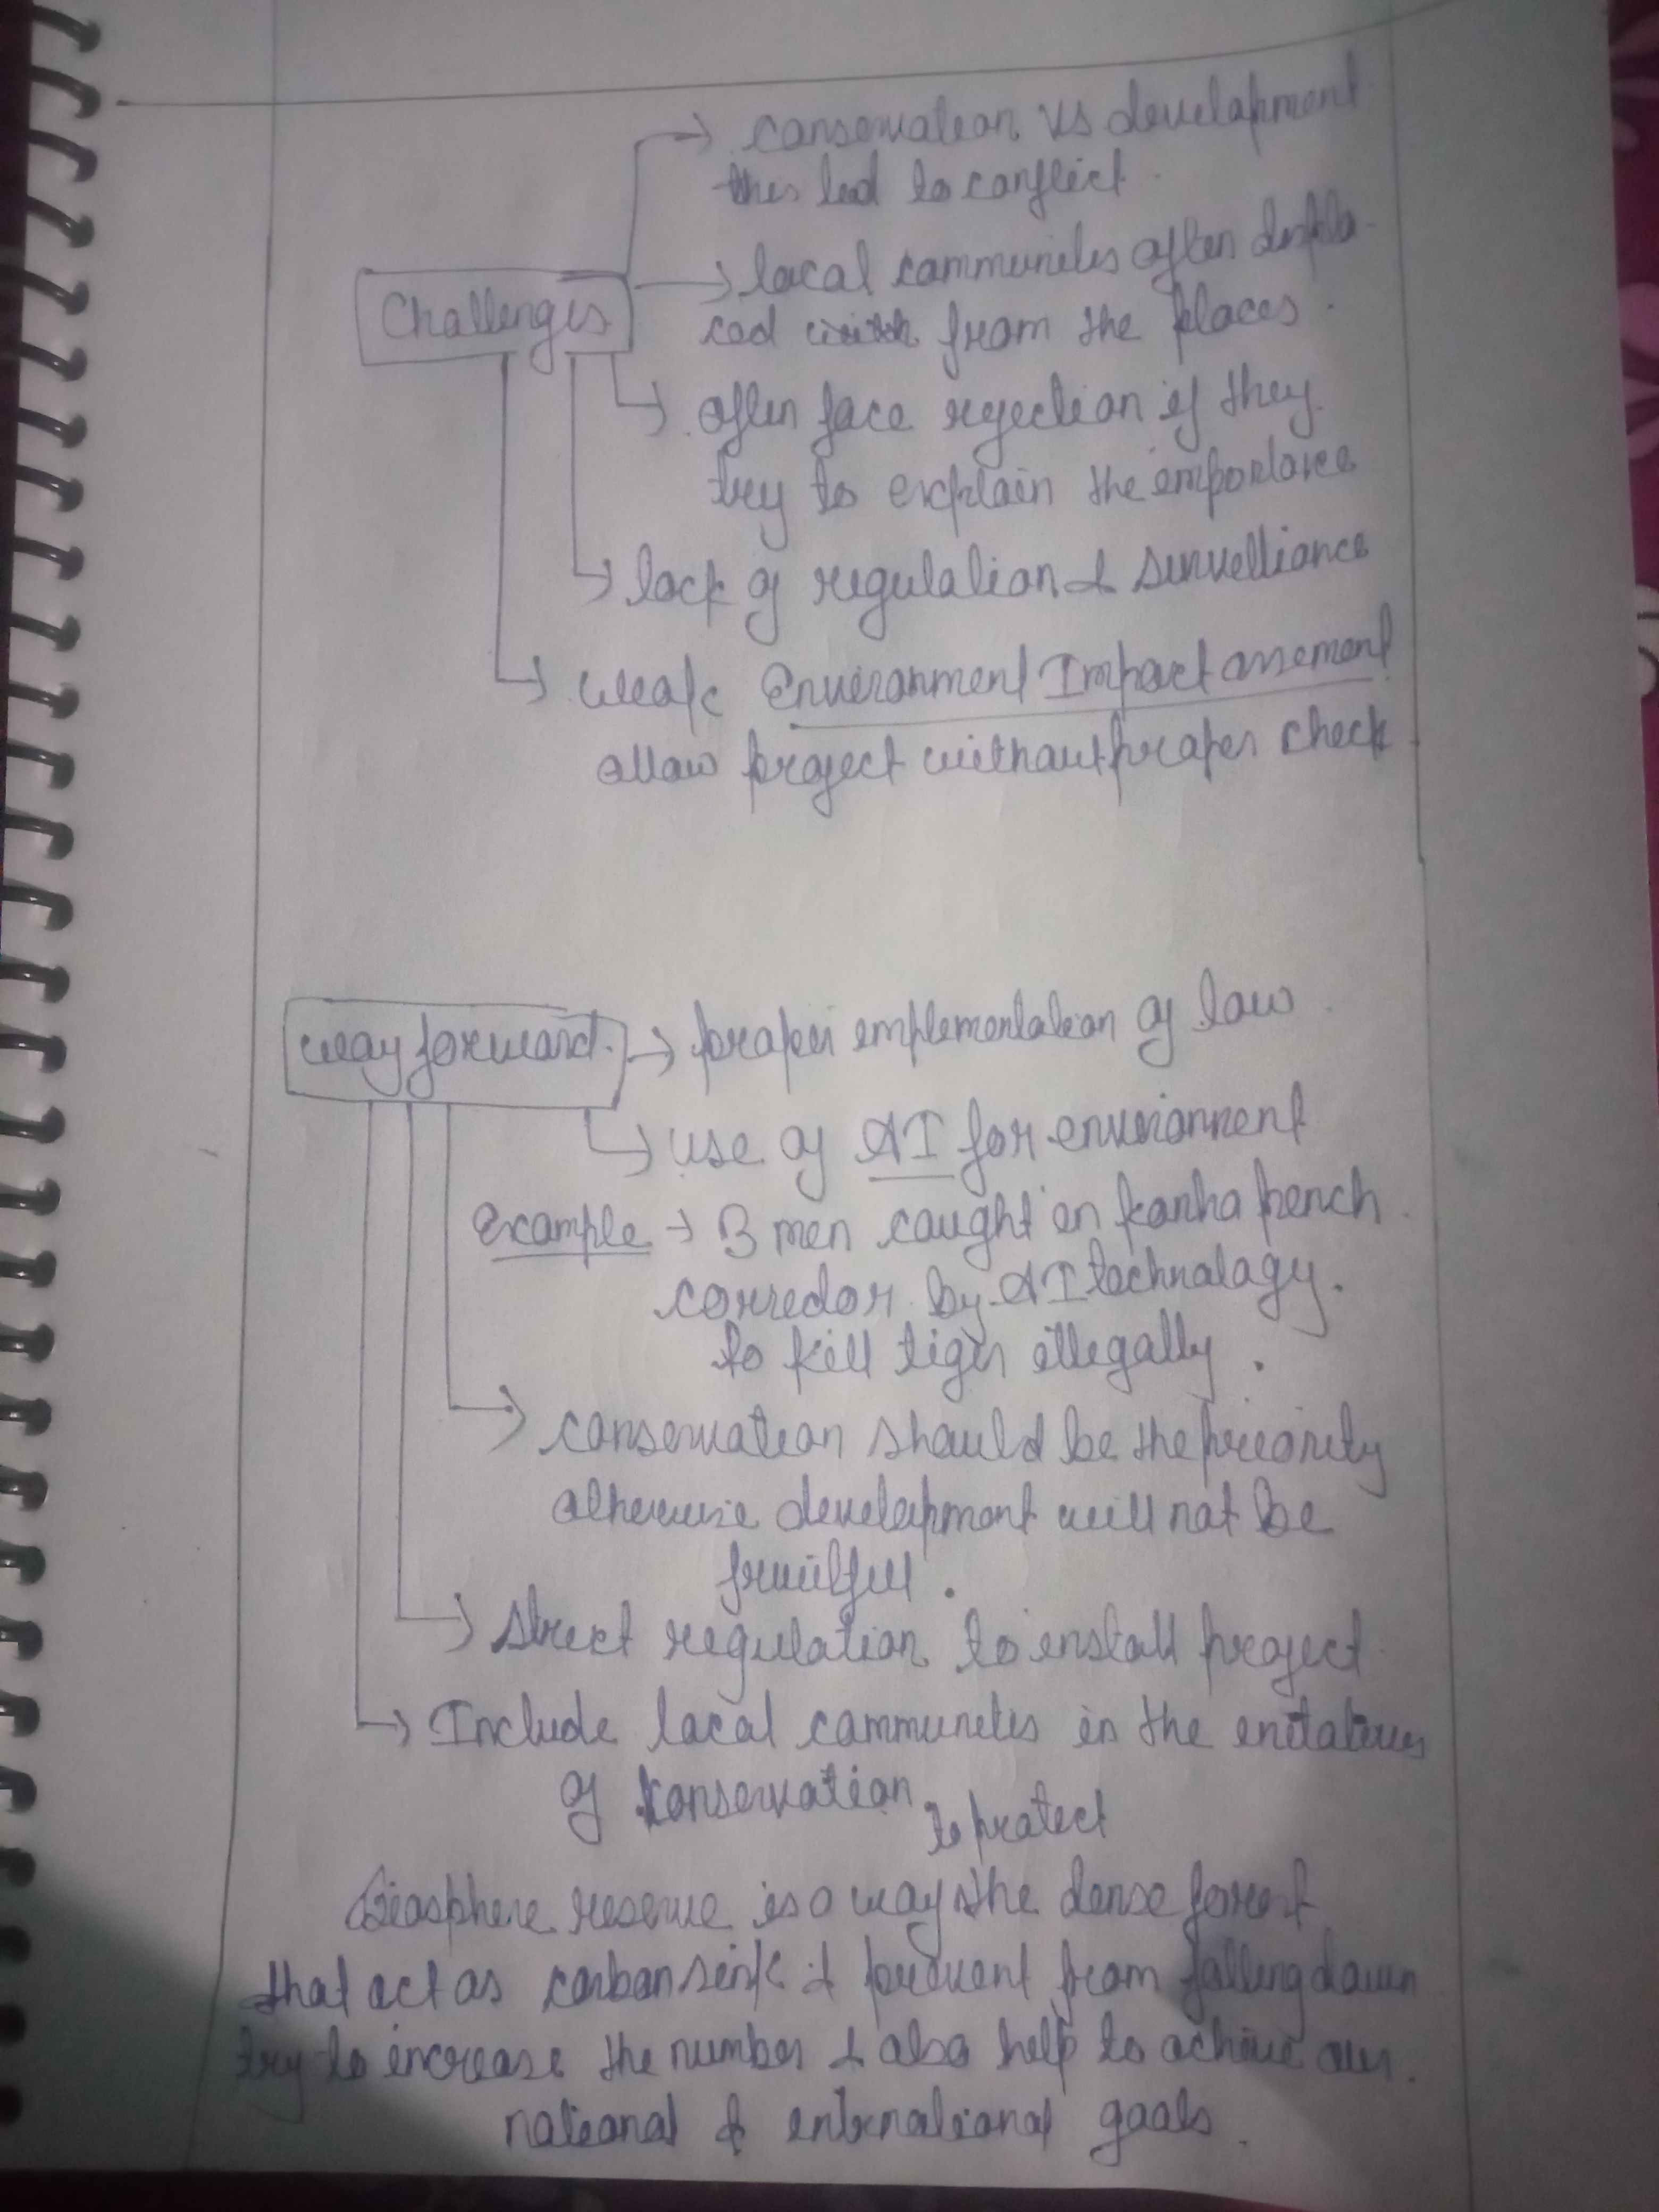 conservation vs development
this led to conflict.
Challenges
local communites often displa-
ced from the places.
often face rejection if they
try to explain the importance
lack of regulation & survelliance
weak Environment Impact assement
allow project without proper check
way forward.
proper implementation of law.
use of AI for environment
Example → 3 men caught in kanha pench
corridor by AI technology.
to kill tiger illegally.
conservation should be the priority
otherwise development will not be
fruitful.
strict regulation to install project
Include local communites in the
of conservation
to protect
Biosphere reserve is a way the dense forest
that act as carbon sink & prevent from falling down
try to increase the number & also help to achive our
national & international goals.